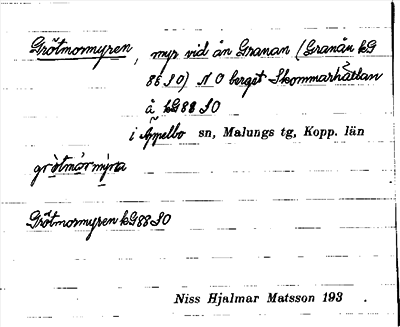 Grötmormyren, myr vid ån Granan (Granån kG
88 SO) N O berget Skommarhåtlan
å kG 88 SO
i Äppelbo sn, Malungs tg, Kopp. län
grötmårmýra
Grötmormyren kG 88 SO
Niss Hjalmar Matsson 193 .